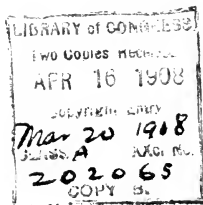 LIBRARY of CONGRESS
Two Copies Received
APR 16 1908
Copyright Entry
Mar 20 1908
CLASS A XXc. No.
202065
COPY B.